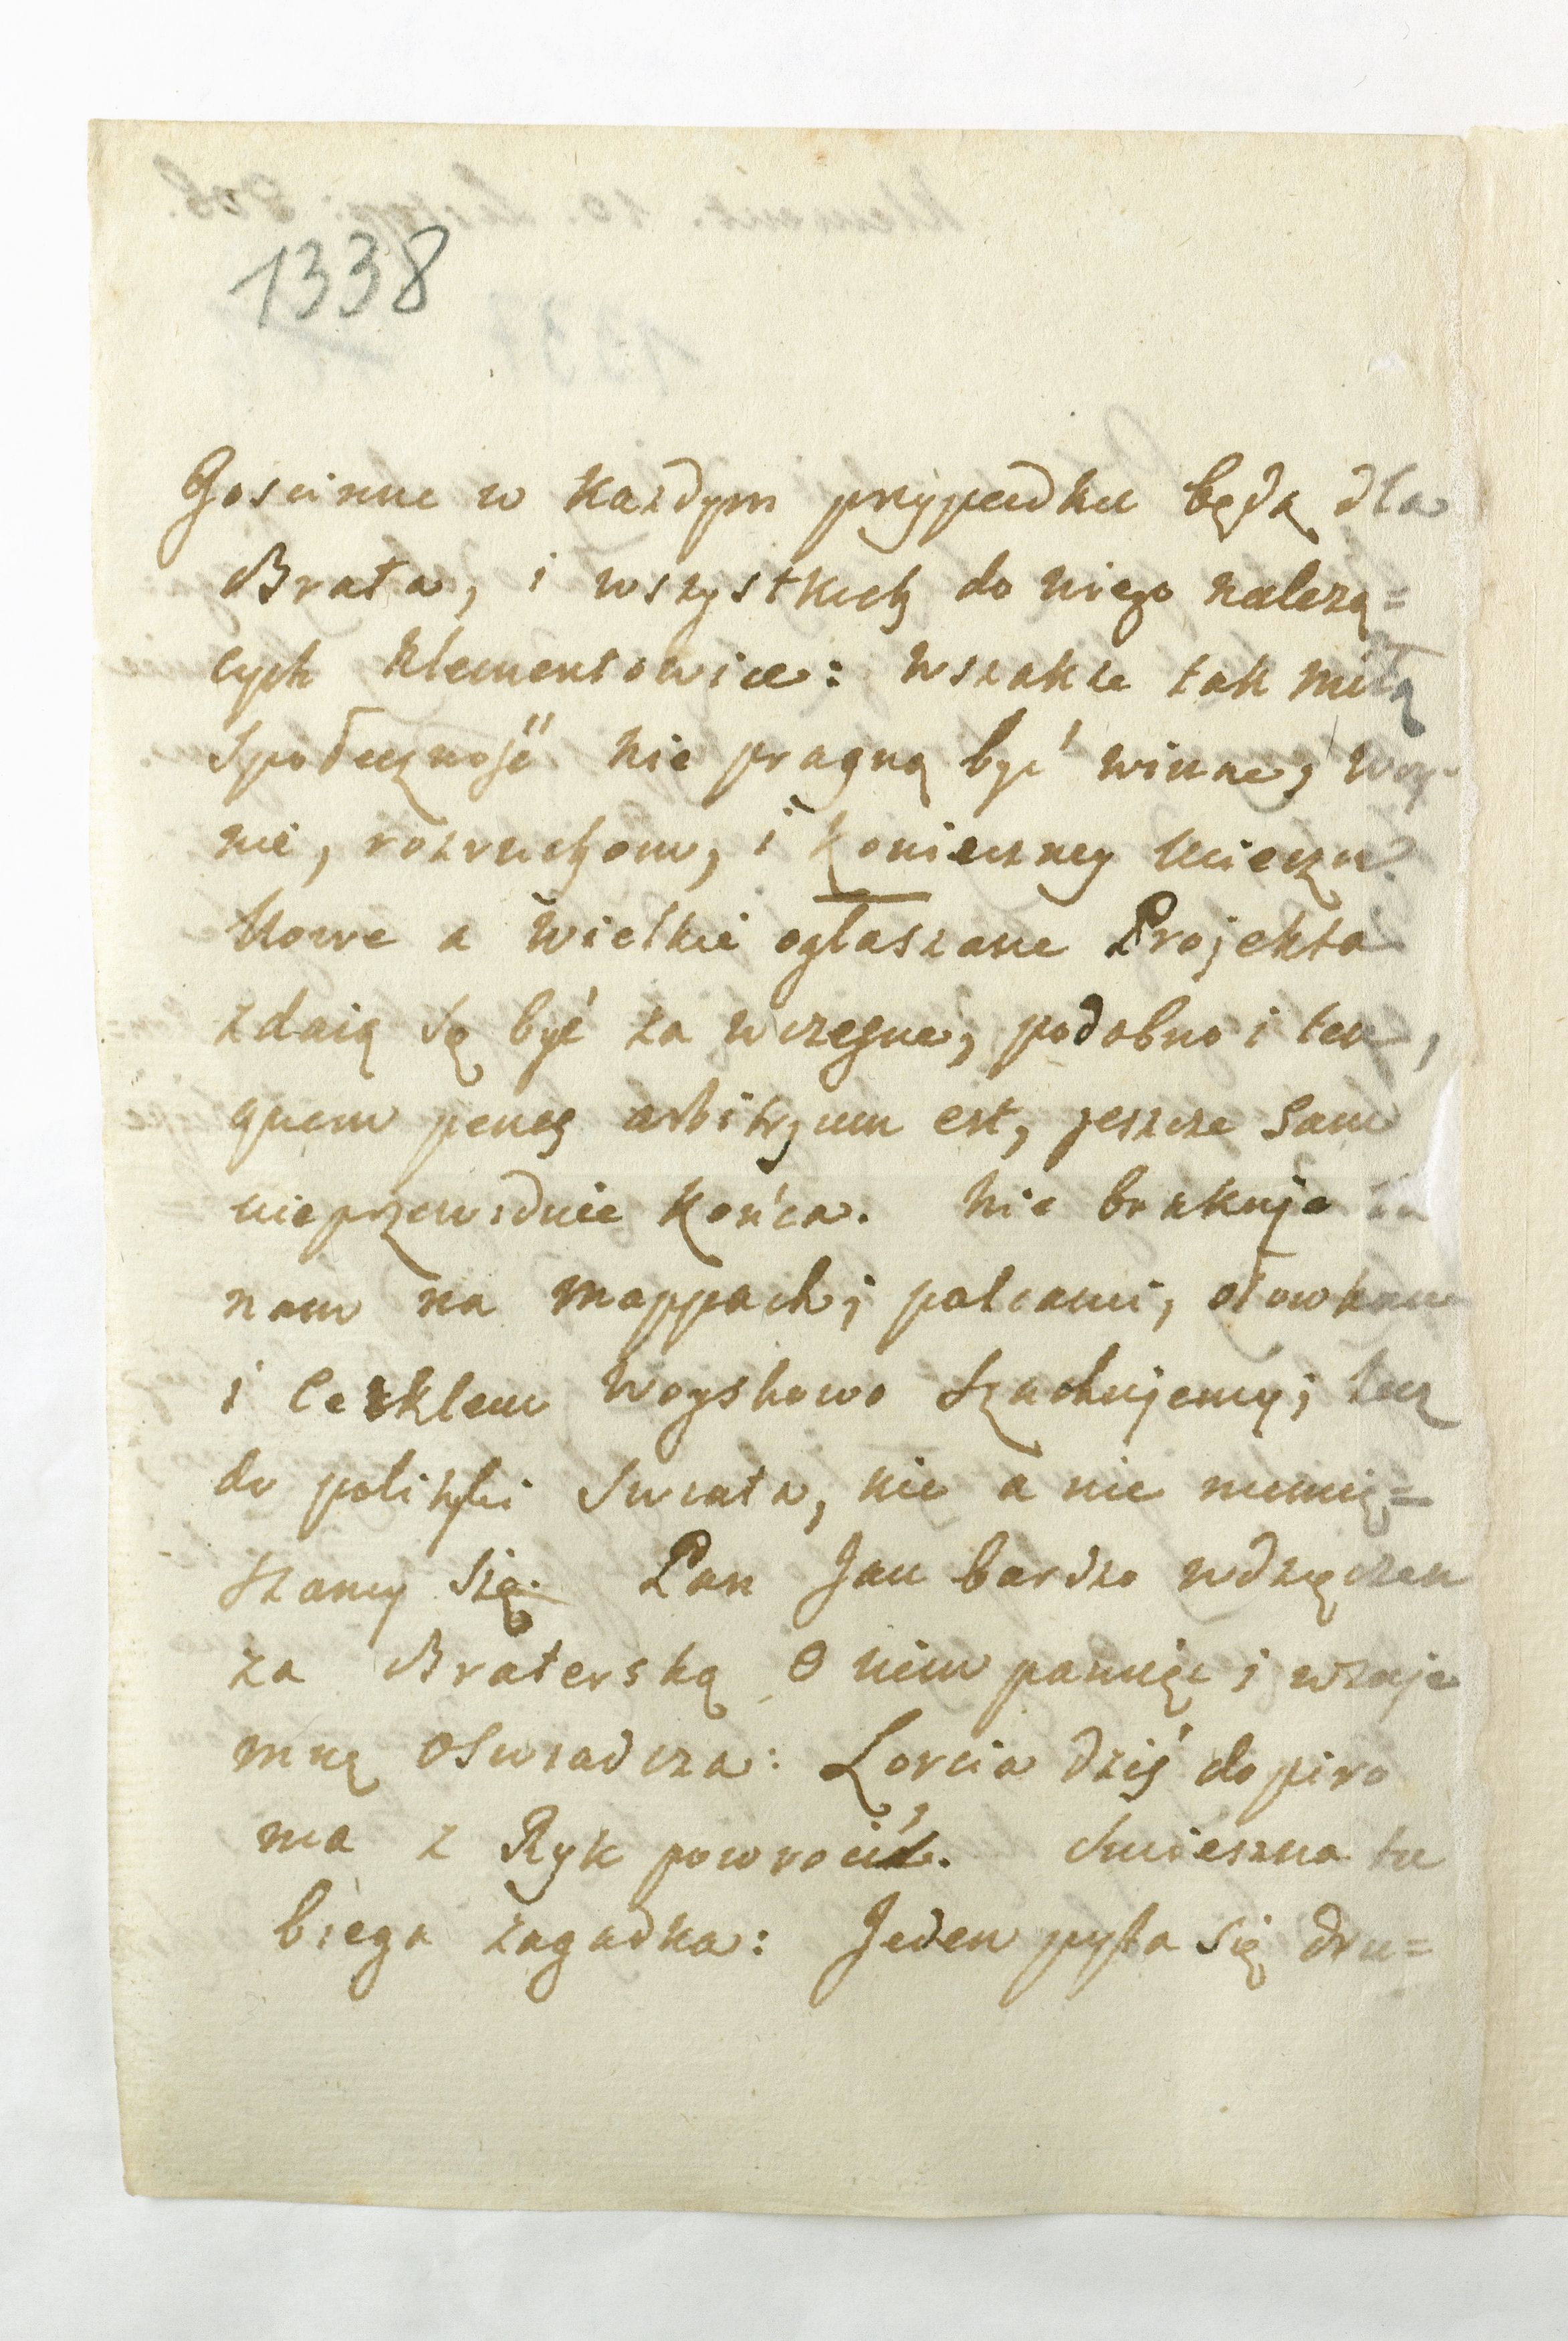 1338
Goscinne w kazdym przypadku będą dla
Brata, i wszystkich do niego nalezą=
cych Klementowice: wszakze tak miłą
społeczność nie pragną być winne, woy=
nie, rozruchom, i konieczney ucieczce.
Nowe a wielkie ogłaszane Projekta
zdaią się być za wczesne, podobno i ten,
quem penes arbitrium est, jeszcze sam
nieprzewiduie końca. Nie brakuje tu
nam na mappach; palcami, ołowkam
i Cerklem Woyskowo szachujemy; lecz
do polityki swiata, nie a nie niemię=
szamy się. Pan Jan bardzo wdzięczen
za Braterską o nim pamięć i wzaje
mną oswiadcza: Lorcia dziś dopiro
ma z Ryk powrocić. Smieszna tu
biega zagadka: Jeden pyta się dru=